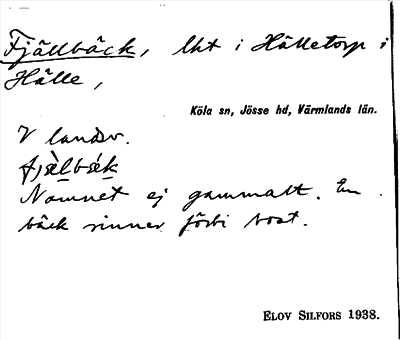 Fjällbäck, lht i Hälletorp i
Hälle,
Köla sn, Jösse hd, Värmlands län.
V landsv.
fjæ̀lbǽk
Namnet ej gammalt. En
bäck rinner förbi bost.
ELOV SILFORS 1938.